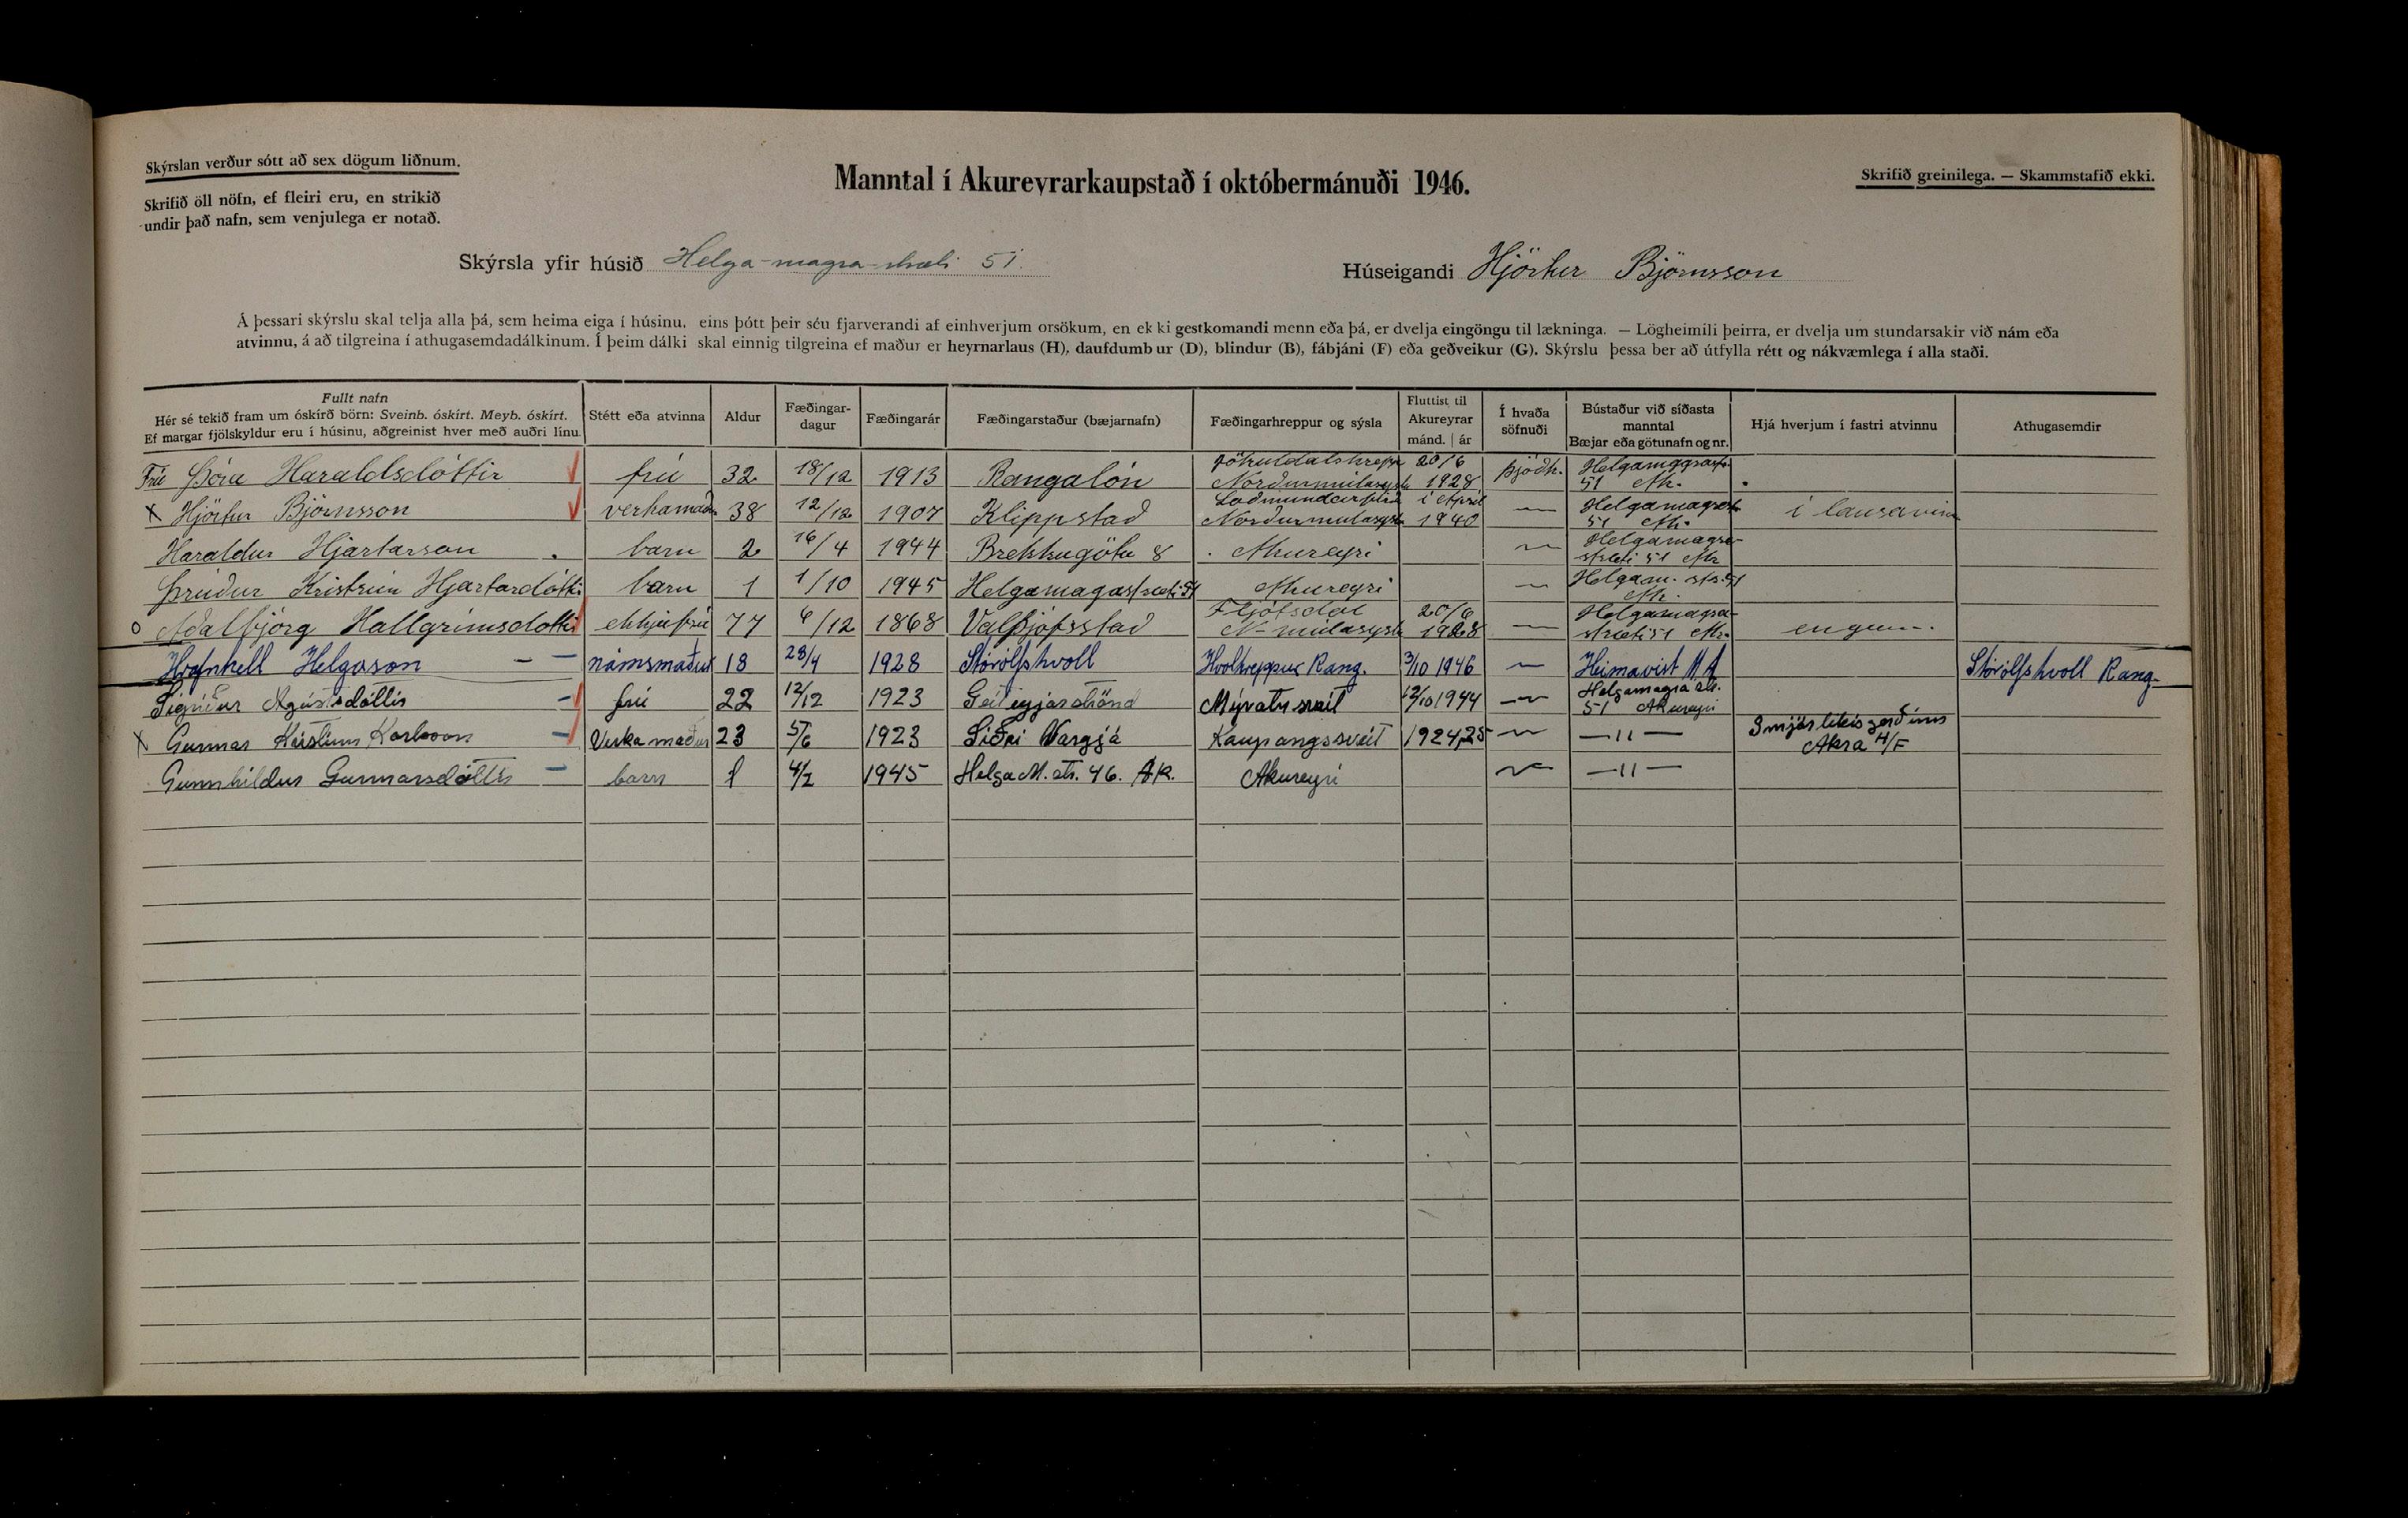 Skýrslan verður sótt að sex dögum liðnum.
Skrifið öll nöfn, ef fleiri eru, en strikið
undir það nafn, sem venjulega er notað.
Manntal í Akureyrarkaupstað í októbermánuði 1946.
Skrifið greinilega. — Skammstafið ekki.
Skýrsla yfir húsið Helga-magra-stræti 51.
Húseigandi Hjörtur Björnsson
Á þessari skýrslu skal telja alla þá, sem heima eiga í húsinu, eins þótt þeir séu fjarverandi af einhverjum orsökum, en ekki gestkomandi menn eða þá, er dvelja eingöngu til lækninga. — Lögheimili þeirra, er dvelja um stundarsakir við nám eða
atvinnu, á að tilgreina í athugasemdadálkinum. Í þeim dálki skal einnig tilgreina ef maður er heyrnarlaus (H), daufdumbur (D), blindur (B), fábjáni (F) eða geðveikur (G). Skýrslu þessa ber að útfylla rétt og nákvæmlega í alla staði.
Fullt nafn
Hér sé tekið fram um óskírð börn: Sveinb. óskírt. Meyb. óskírt.
Ef margar fjölskyldur eru í húsinu, aðgreinist hver með auðri línu.
Stétt eða atvinna
Aldur
Fæðingar-
dagur
Fæðingarár
Fæðingarstaður (bæjarnafn)
Fæðingarhreppur og sýsla
Fluttist til
Akureyrar
mánd. | ár
Í hvaða
söfnuði
Bústaður við síðasta
manntal
Bæjar eða götunafn og nr.
Hjá hverjum í fastri atvinnu
Athugasemdir
Frú Þóra Haraldsdóttir frú 32 18/12 1913 Rangalón Jökuldalshrepp Norðurmúlasýslu 20/6 1928 Þjóðk. Helgamagrastr. 51 Ak.
x Hjörtur Björnsson verkamaður 38 12/12 1907 Klippstað Loðmundarfirði Norðurmúlasýslu í Apríl 1940 — Helgamagrast 51 Ak. í lausavinnu
Haraldur Hjartarson barn 2 16/4 1944 Brekkugötu 8 Akureyri — Helgamagra-stræti 51 Ak
Þrúður Kristrún Hjartardóttir barn 1 1/10 1945 Helgamagastræti 51 Akureyri — Helgam. str. 51 Ak.
o Aðalbjörg Hallgrímsdóttir ekkjufrú 77 6/12 1868 Valþjófsstað Fljótsdal N-múlasýslu 20/6 1928 — Helgamagra-stræti 51 Ak. engum.
Hrafnkell Helgason námsmaður 18 28/4 1928 Stórólfshvoll Hvolhreppur Rang. 3/10 1946 — Heimavist M A Stórólfshvoll Rang.
Sigríður Ágústsdóttir frú 22 12/12 1923 Geiteyjarströnd Mývatnssveit 12/10 1944 — Helgamagra str. 51 Akureyri
x Gunnar Kristinn Karlsson Verkamaður 23 5/6 1923 Siðri Vargjá Kaupangssveit 1924,25 — —11— Smjörlíkisgerðinni Akra H/F
Gunnhildur Gunnarsdóttir barn 1 4/2 1945 Helga M. str. 46. Ak. Akureyri — —11—